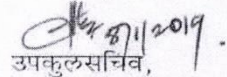 8/1/2019.
उपकुलसचिव,